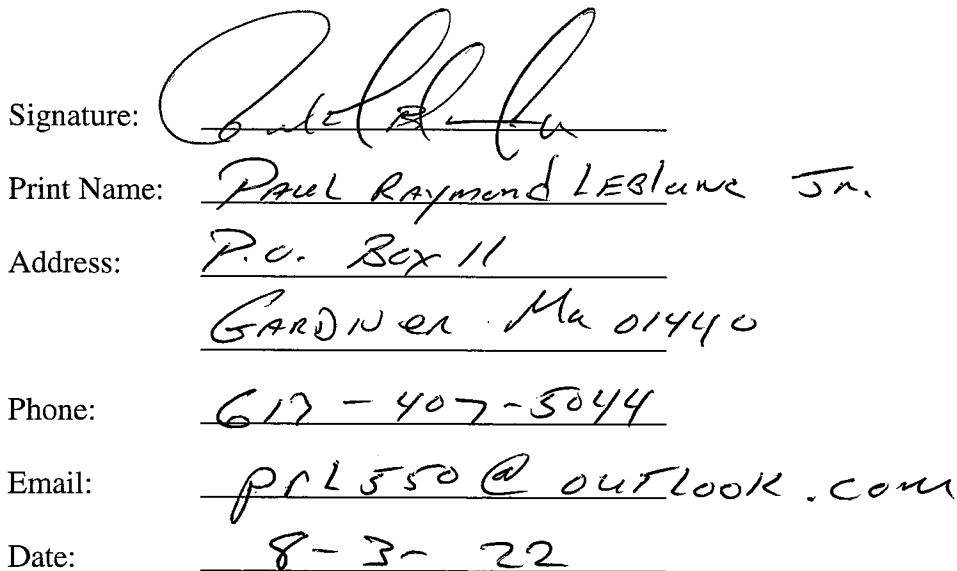 Signature:
Print Name: PAUL RAYMOND LEBlanc Jr.
Address: P.O. Box 11
GARDNER Ma 01440
Phone: 617-407-5044
Email: prL550@outlook.com
Date: 8-3-22